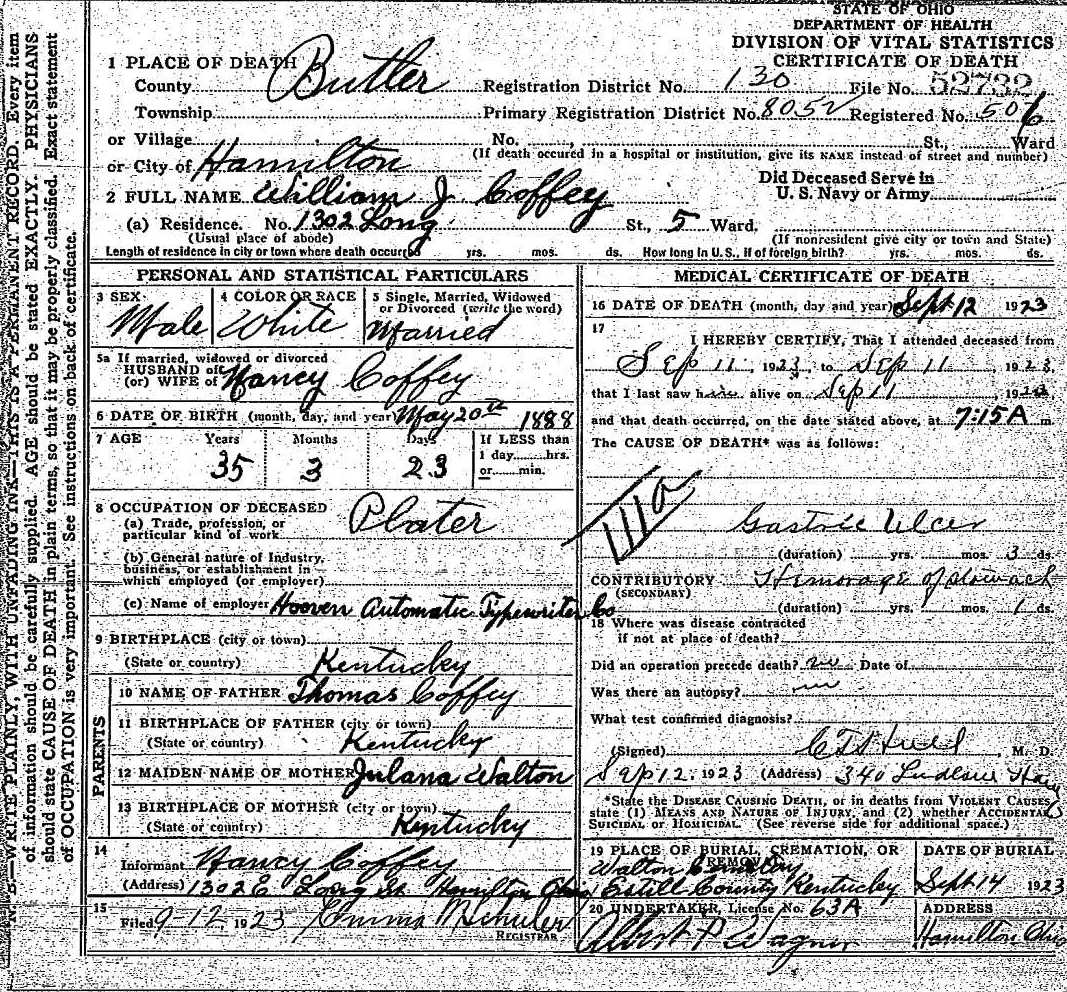 STATE OF OHIO
DEPARTMENT OF HEALTH
DIVISION OF VITAL STATISTICS
CERTIFICATE OF DEATH
1 PLACE OF DEATH
County Butler Registration District No. 130 File No. 52732
Township Primary Registration District No. 8052 Registered No. 506
or Village No. St., Ward
or City of Hamilton (If death occured in a hospital or institution, give its NAME instead of street and number)
2 FULL NAME William J Coffey Did Deceased Serve in U. S. Navy or Army
(a) Residence. No. 1302 Long St., 5 Ward.
(Usual place of abode) (If nonresident give city or town and State)
Length of residence in city or town where death occurred yrs. mos. ds. How long in U. S., if of foreign birth? yrs. mos. ds.
PERSONAL AND STATISTICAL PARTICULARS
3 SEX 4 COLOR OR RACE 5 Single, Married, Widowed
or Divorced (write the word)
Male White Married
5a If married, widowed or divorced
HUSBAND of
(or) WIFE of Nancy Coffey
6 DATE OF BIRTH (month, day, and year) May 20th 1888
7 AGE Years Months Days If LESS than
1 day hrs.
35 3 23 or min.
8 OCCUPATION OF DECEASED
(a) Trade, profession, or
particular kind of work Plater
(b) General nature of Industry,
business, or establishment in
which employed (or employer)
(c) Name of employer Hooven Automatic Typewriter Co
9 BIRTHPLACE (city or town)
(State or country) Kentucky
PARENTS
10 NAME OF FATHER Thomas Coffey
11 BIRTHPLACE OF FATHER (city or town)
(State or country) Kentucky
12 MAIDEN NAME OF MOTHER Julana Walton
13 BIRTHPLACE OF MOTHER (city or town)
(State or country) Kentucky
14
Informant Nancy Coffey
(Address) 1302 E Long st Hamilton Ohio
15
Filed 9-12, 1923 Emma
REGISTRAR
MEDICAL CERTIFICATE OF DEATH
16 DATE OF DEATH (month, day and year) Sept 12 1923
17
I HEREBY CERTIFY, That I attended deceased from
Sep 11, 1923, to Sep 11, 1923,
that I last saw him alive on Sep 11, 1923
and that death occurred, on the date stated above, at 7:15 A m.
The CAUSE OF DEATH* was as follows:
111a
Gastric Ulcer
(duration) yrs. mos. 3 ds.
CONTRIBUTORY Hemorage of stomach
(SECONDARY)
(duration) yrs. mos. 1 ds.
18 Where was disease contracted
if not at place of death?
Did an operation precede death? no Date of
Was there an autopsy? no
What test confirmed diagnosis?
(Signed) M. D.
Sep 12, 1923 (Address) 340 Ludlow
*State the DISEASE CAUSING DEATH, or in deaths from VIOLENT CAUSES,
state (1) MEANS AND NATURE OF INJURY, and (2) whether ACCIDENTAL,
SUICIDAL or HOMICIDAL. (See reverse side for additional space.)
19 PLACE OF BURIAL, CREMATION, OR REMOVAL DATE OF BURIAL
Walton Cemetery
Estill County Kentucky Sept 14 1923
20 UNDERTAKER, License No. 63A ADDRESS
Albert P Wagner Hamilton Ohio
N. B.—WRITE PLAINLY, WITH UNFADING INK—THIS IS A PERMANENT RECORD. Every item
of information should be carefully supplied. AGE should be stated EXACTLY. PHYSICIANS
should state CAUSE OF DEATH in plain terms, so that it may be properly classified. Exact statement
of OCCUPATION is very important. See instructions on back of certificate.